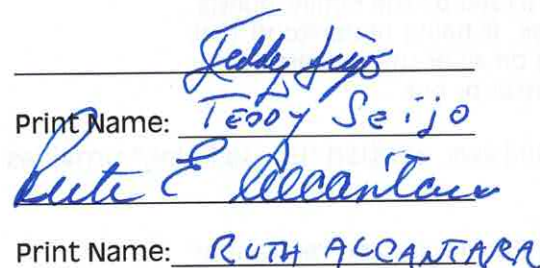 Teddy Seijo
Print Name: TEDDY Seijo
Ruth E Alcantara
Print Name: RUTH ALCANTARA